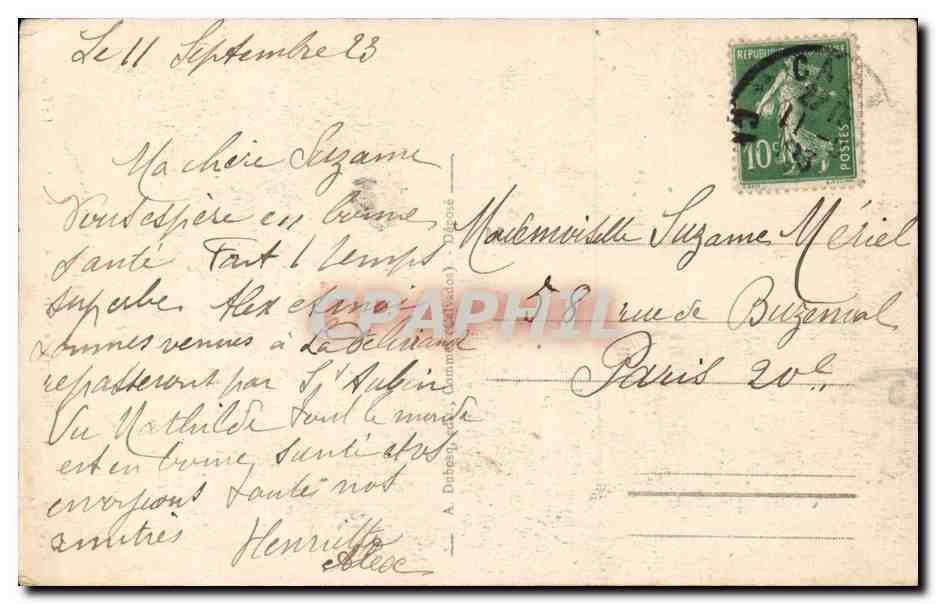 Le 11 Septembre 23
Ma chère Suzanne
Vous espère en bonne
santé Tout temps
superbe Alex et moi
sommes venues à La Délivrande
repasseront par St Aubin
Vu Mathilde tout le monde
est en bonne santé et vs
envoyions toutes nos
amitiés Henriette
Alex
A. Dubosq, édit., Commes (Calvados). - Déposé
REPUBLIQUE
10c
POSTES
CA
EN
Mademoiselle Suzanne Mériel
58 rue de Buzenval
Paris 20e
CPAPHIL